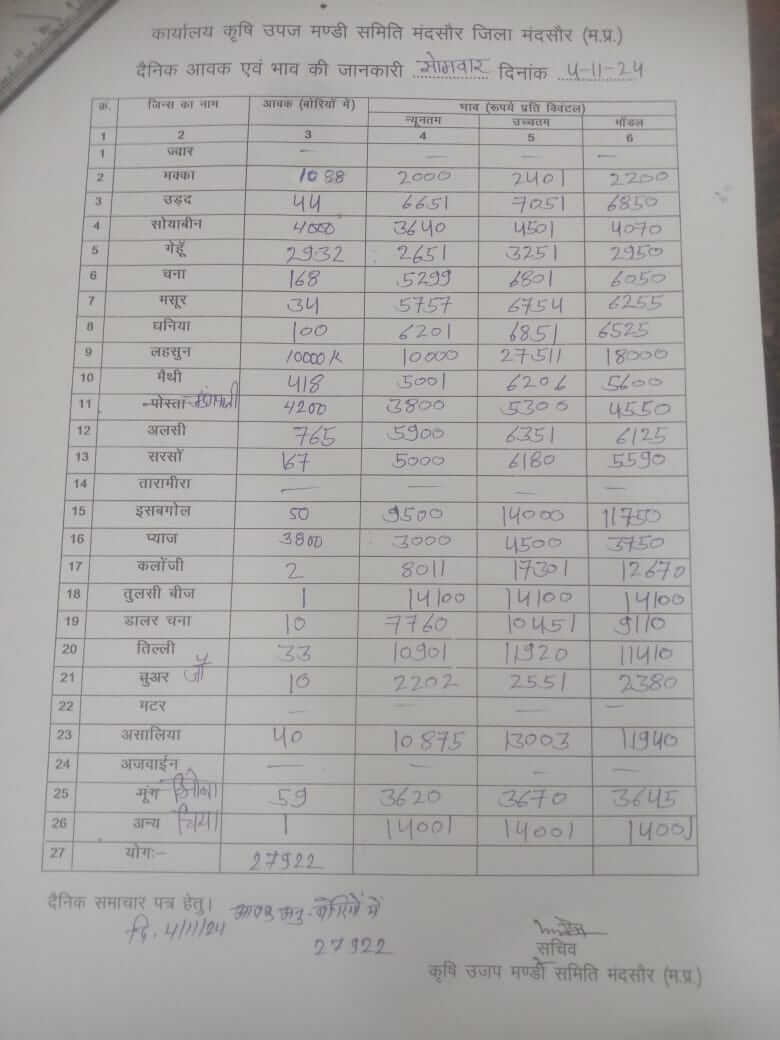 कार्यालय कृषि उपज मण्डी समिति मंदसौर जिला मंदसौर (म.प्र.)
दैनिक आवक एवं भाव की जानकारी सोमवार दिनांक 4-11-24
क्र. जिन्स का नाम आवक (बोरियों में) भाव (रूपये प्रति क्विंटल)
न्यूनतम उच्चतम मॉडल
1 2 3 4 5 6
1 ज्वार — — — —
2 मक्का 1088 2000 2401 2200
3 उड़द 44 6651 7051 6850
4 सोयाबीन 4000 3640 4501 4070
5 गेहूँ 2932 2651 3251 2950
6 चना 168 5299 6801 6050
7 मसूर 34 5757 6754 6255
8 धनिया 100 6201 6851 6525
9 लहसुन 10000 K 10000 27511 18000
10 मैथी 418 5001 6206 5600
11 पोस्ता 4200 3800 5300 4550
12 अलसी 765 5900 6351 6125
13 सरसों 167 5000 6180 5590
14 तारामीरा — — — —
15 इसबगोल 50 9500 14000 11750
16 प्याज 3800 3000 4500 3750
17 कलोंजी 2 8011 17301 12670
18 तुलसी बीज 1 14100 14100 14100
19 डालर चना 10 7760 10451 9110
20 तिल्ली 33 10901 11920 11410
21 बुअर जौ 10 2202 2551 2380
22 मटर — — — —
23 असालिया 40 10875 13003 11940
24 अजवाईन — — — —
25 मूंग 59 3620 3670 3645
26 अन्य चिया 1 14001 14001 14001
27 योगः- 27922
दैनिक समाचार पत्र हेतु।
दि. 4/11/24
बोरियों में
27922
सचिव
कृषि उजप मण्डी समिति मंदसौर (म.प्र.)